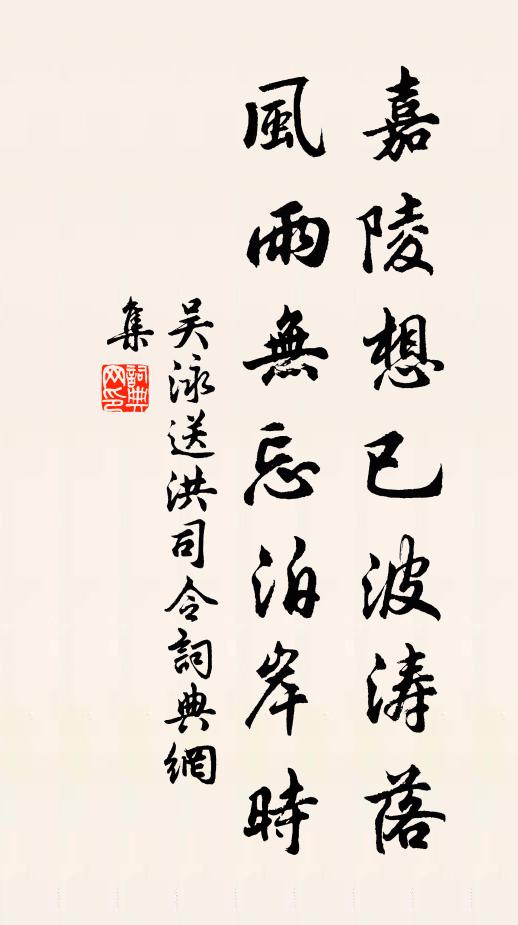 嘉陵想已波涛落
風雨無忘泊岸時
吴泳送洪司令詞典網
集
詞典网印